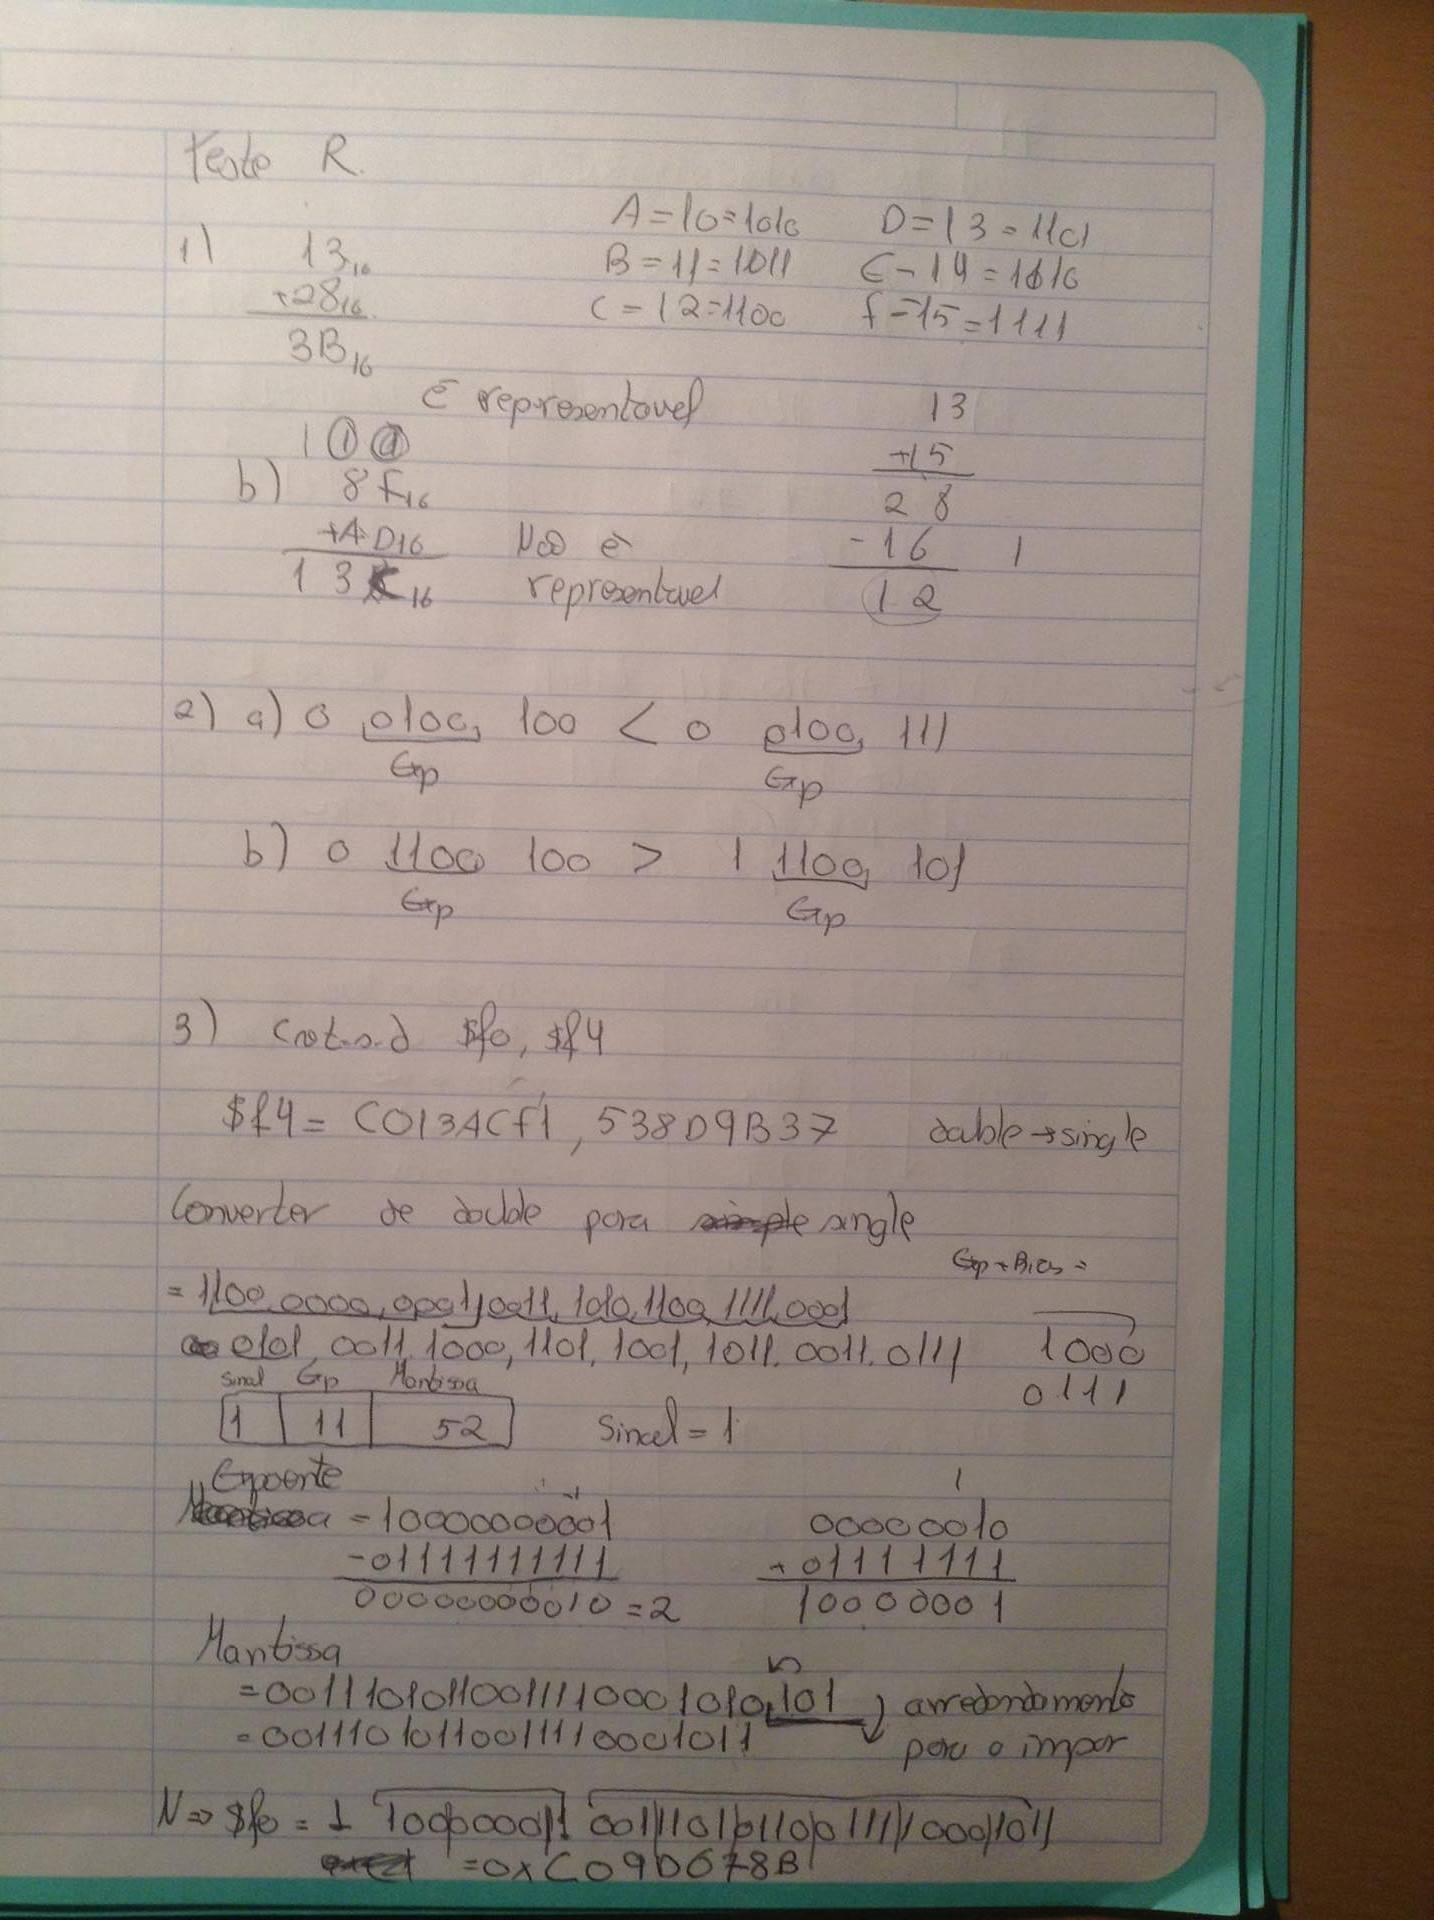 Teste R.
A=10=1010 D=13=1101
1) 13₁₆ B=11=1011 E-14=1110
+28₁₆ C=12=1100 f=15=1111
3B₁₆
É representavel 13
1 1 +15
b) 8F₁₆ 28
+AD₁₆ Não é -16 1
13C₁₆ representavel 12
2) a) 0 0100, 100 < 0 0100, 111
Exp Exp
b) 0 1100 100 > 1 1100, 101
Exp Exp
3) cvt.s.d $f0, $f4
$f4= C013ACf1, 538D9B37 double→single
Converter de double para simple single
Exp+Bias=
=1100,0000,0001,0011,1010,1100,1111,0001
0101,0011,1000,1101,1001,1011.0011.0111 1000
Sinal Exp Mantissa 0111
1 11 52 Sinal=1
Expoente 1
Mantissa =10000000001 00000010
-01111111111 +01111111
00000000010=2 10000001
Mantissa
=00111010110011110001010,101 arredondamento
=00111010110011110001011 para o impar
N=> $f0 = 1 10000001 00111010110011110001011
=0xC09D678B